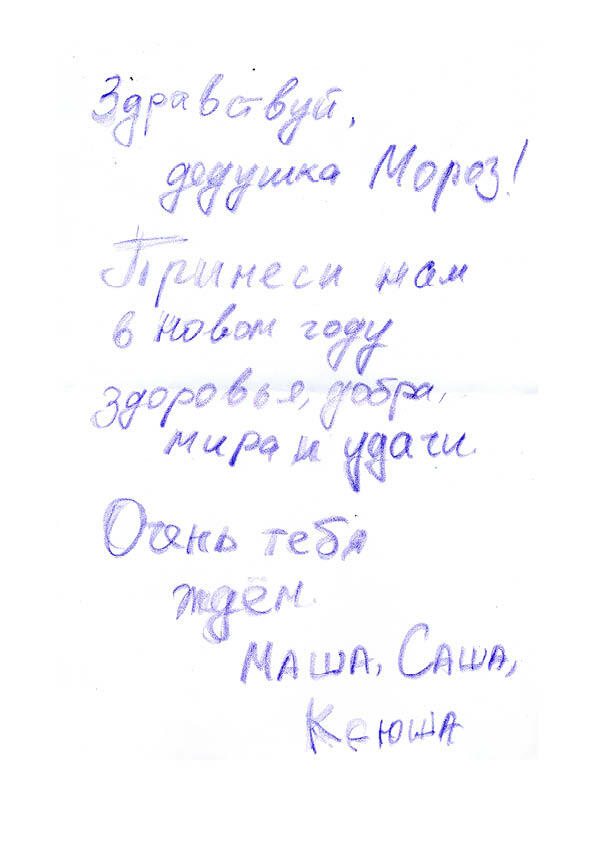 Здравствуй,
дедушка Мороз!
Принеси нам
в новом году
здоровья, добра,
мира и удачи.
Очень тебя
ждём.
Маша, Саша,
Ксюша